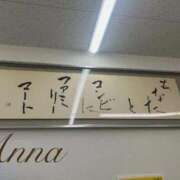 あなた
と
コンビに
ファミリー
マート
Anna